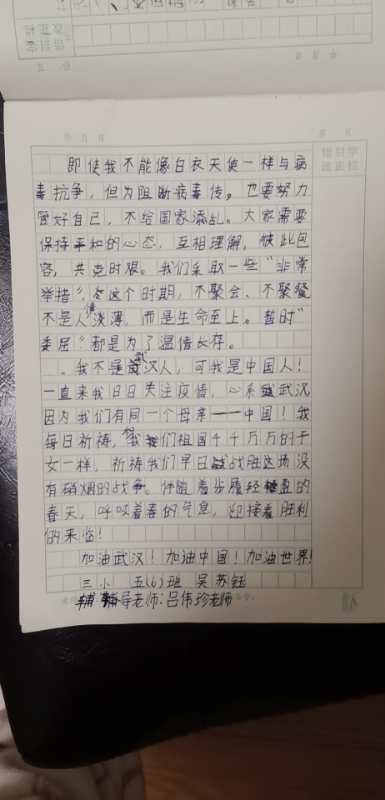 即使我不能像白衣天使一样与病
毒抗争，但为阻断病毒传，也要努力
管好自己，不给国家添乱。大家需要
保持平和的心态，互相理解，彼此包
容，共克时艰。我们采取一些“非常
举措”，在这个时期，不聚会、不聚餐
不是人情淡薄，而是生命至上。暂时“
委屈”都是为了温情长存。
我不是武汉人，可我是中国人！
一直来我日日关注疫情，心系武汉
因为我们有同一个母亲——中国！我
每日祈祷，和我们祖国千千万万的子
女一样，祈祷我们早日战胜这场没
有硝烟的战争。伴随着步履轻盈的
春天，呼吸着春的气息，迎接着胜利
的来临！
加油武汉！加油中国！加油世界！
三小 五(6)班 吴苏钰
辅导老师：吕伟珍老师